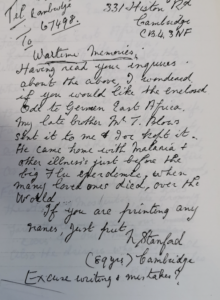 Tel Cambridge
67498.
331 Histon Rd
Cambridge
CB4 3NF
To
Wartime Memories.
Having read your enquires
about the above, I wondered
if you would like the enclosed
Ode to German East Africa.
My late brother Mr T.
sent it to me & I've kept it.
He came home with Malaria &
other illness's just before the
big Flu epedemic, when
many loved ones died, over the
World
If you are printing any
names, just put
(aged) Cambridge
Excuse writing & mistakes!